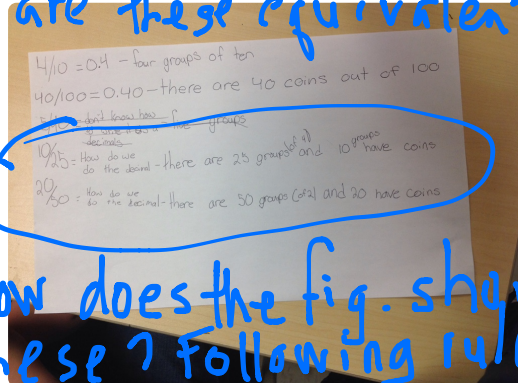 are these equivalen
4/10 = 0.4 - four groups of ten
40/100 = 0.40 - there are 40 coins out of 100
don't know how
groups
decimals
10/25 = How do we do the decimal - there are 25 groups (of 4) and 10 groups have coins
20/50 = How do we do the decimal - there are 50 groups (of 2) and 20 have coins
ow does the fig. sho
ese? Following rul